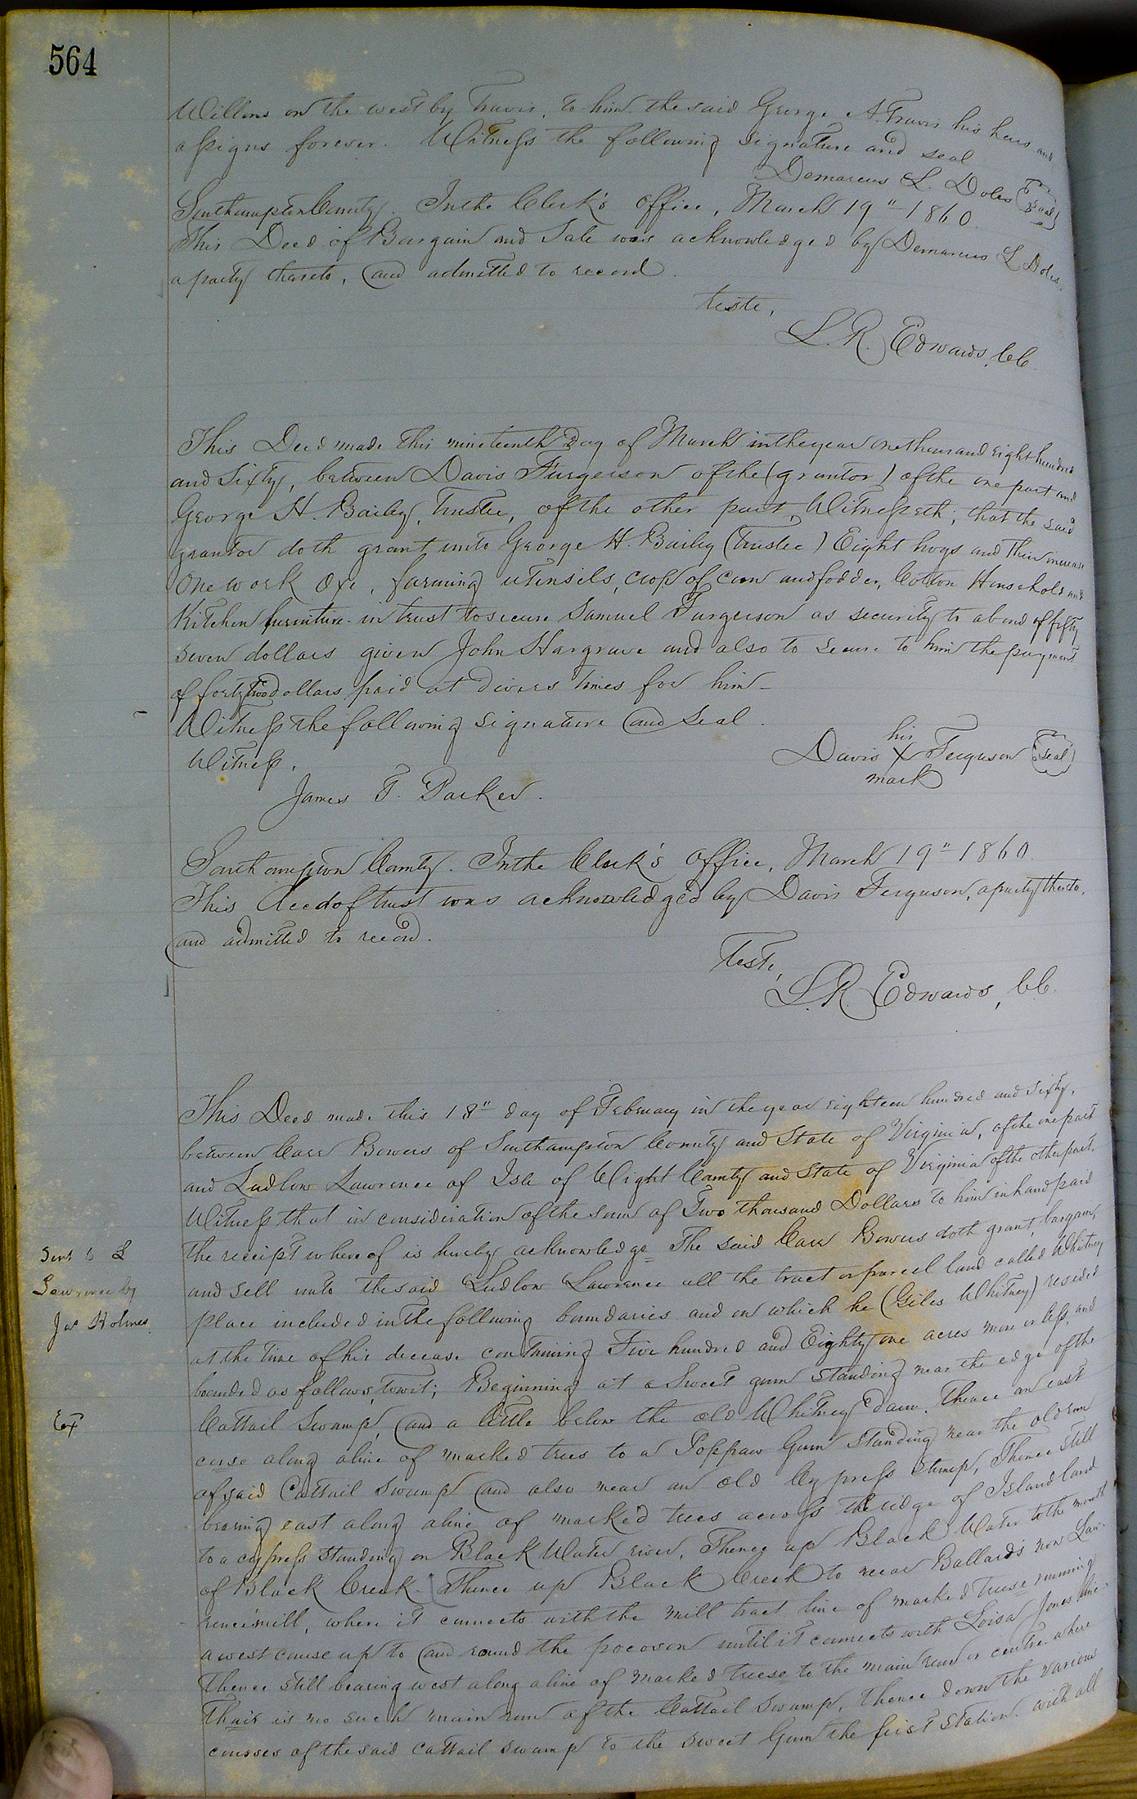 564
Willons on the west by Travis, to him the said George A. Travis his heirs and
assigns forever. Witness the following signature and seal
Demarcus L. Doles (Seal)
Southampton County. In the Clerk's office, March 19" 1860.
This Deed of Bargain and Sale was acknowledged by Demarcus L Doles,
a party thereto, and admitted to record.
Teste,
L. R. Edwards, CC.
This Deed made this nineteenth day of March in the year one thousand eight hundred
and Sixty, between Davis Furgerson of the (grantor) of the one part and
George H. Bailey, Trustee, of the other part, Witnesseth; that the said
grantor doth grant unto George H. Bailey (Trustee) Eight hogs and Their increase
One work Oxe, farming utensils, crop of corn and fodder, Cotton Household and
Kitchen furniture in trust to secure Samuel Furgerson as security to a bond of fifty
seven dollars given John Hargrave and also to secure to him the payment
of forty two dollars paid at divers times for him -
Witness the following signature and seal.
Witness,
James T. Parker.
his
Davis X Ferguson (Seal)
mark
Southampton County. In the Clerk's office, March 19" 1860.
This Deed of trust was acknowledged by Davis Ferguson, a party thereto,
and admitted to record.
Teste,
L. R. Edwards, CC.
This Deed made this 18" day of February in the year eighteen hundred and sixty,
between Carr Bowers of Southampton County and State of Virginia, of the one part
and Ludlow Lawrence of Isle of Wight County and State of Virginia of the other part.
Witness that in consideration of the sum of Two thousand Dollars to him in hand paid
the receipt whereof is hereby acknowledge The said Carr Bowers doth grant, bargain,
and sell unto the said Ludlow Lawrence all the tract or parcel land called Whitney
place included in the following boundaries and on which he (Giles Whitney) resided
at the time of his decease containing Five hundred and Eighty one acres more or less, and
bounded as follows, towit; Beginning at a Sweet gum standing near the edge of the
Cattail Swamp, and a little below the old Whitney dam. Thence an east
curse along aline of marked trees to a Poppaw Gum Standing near the old run
of said Cattail Swamp and also near an old Cypress Stump, Thence still
bearing east along aline of marked trees across the ridge of Island land
to a cypress standing on Black Water river, Thence up Black Water to the mouth
of Black Creek - Thence up Black Creek to near Ballard's now Law-
rence mill, where it connects with the mill tract line of marked treese running
a west course up to and round the pocoson until it connects with Loisa Jones line
Thence still bearing west along aline of marked treese to the main run or centre where
thair is no such main run of the Cattail Swamp, thence down the various
courses of the said Cattail swamp to the sweet Gum the first station. with all
Sent to L
Lawrence by
Jas Holmes
Ex